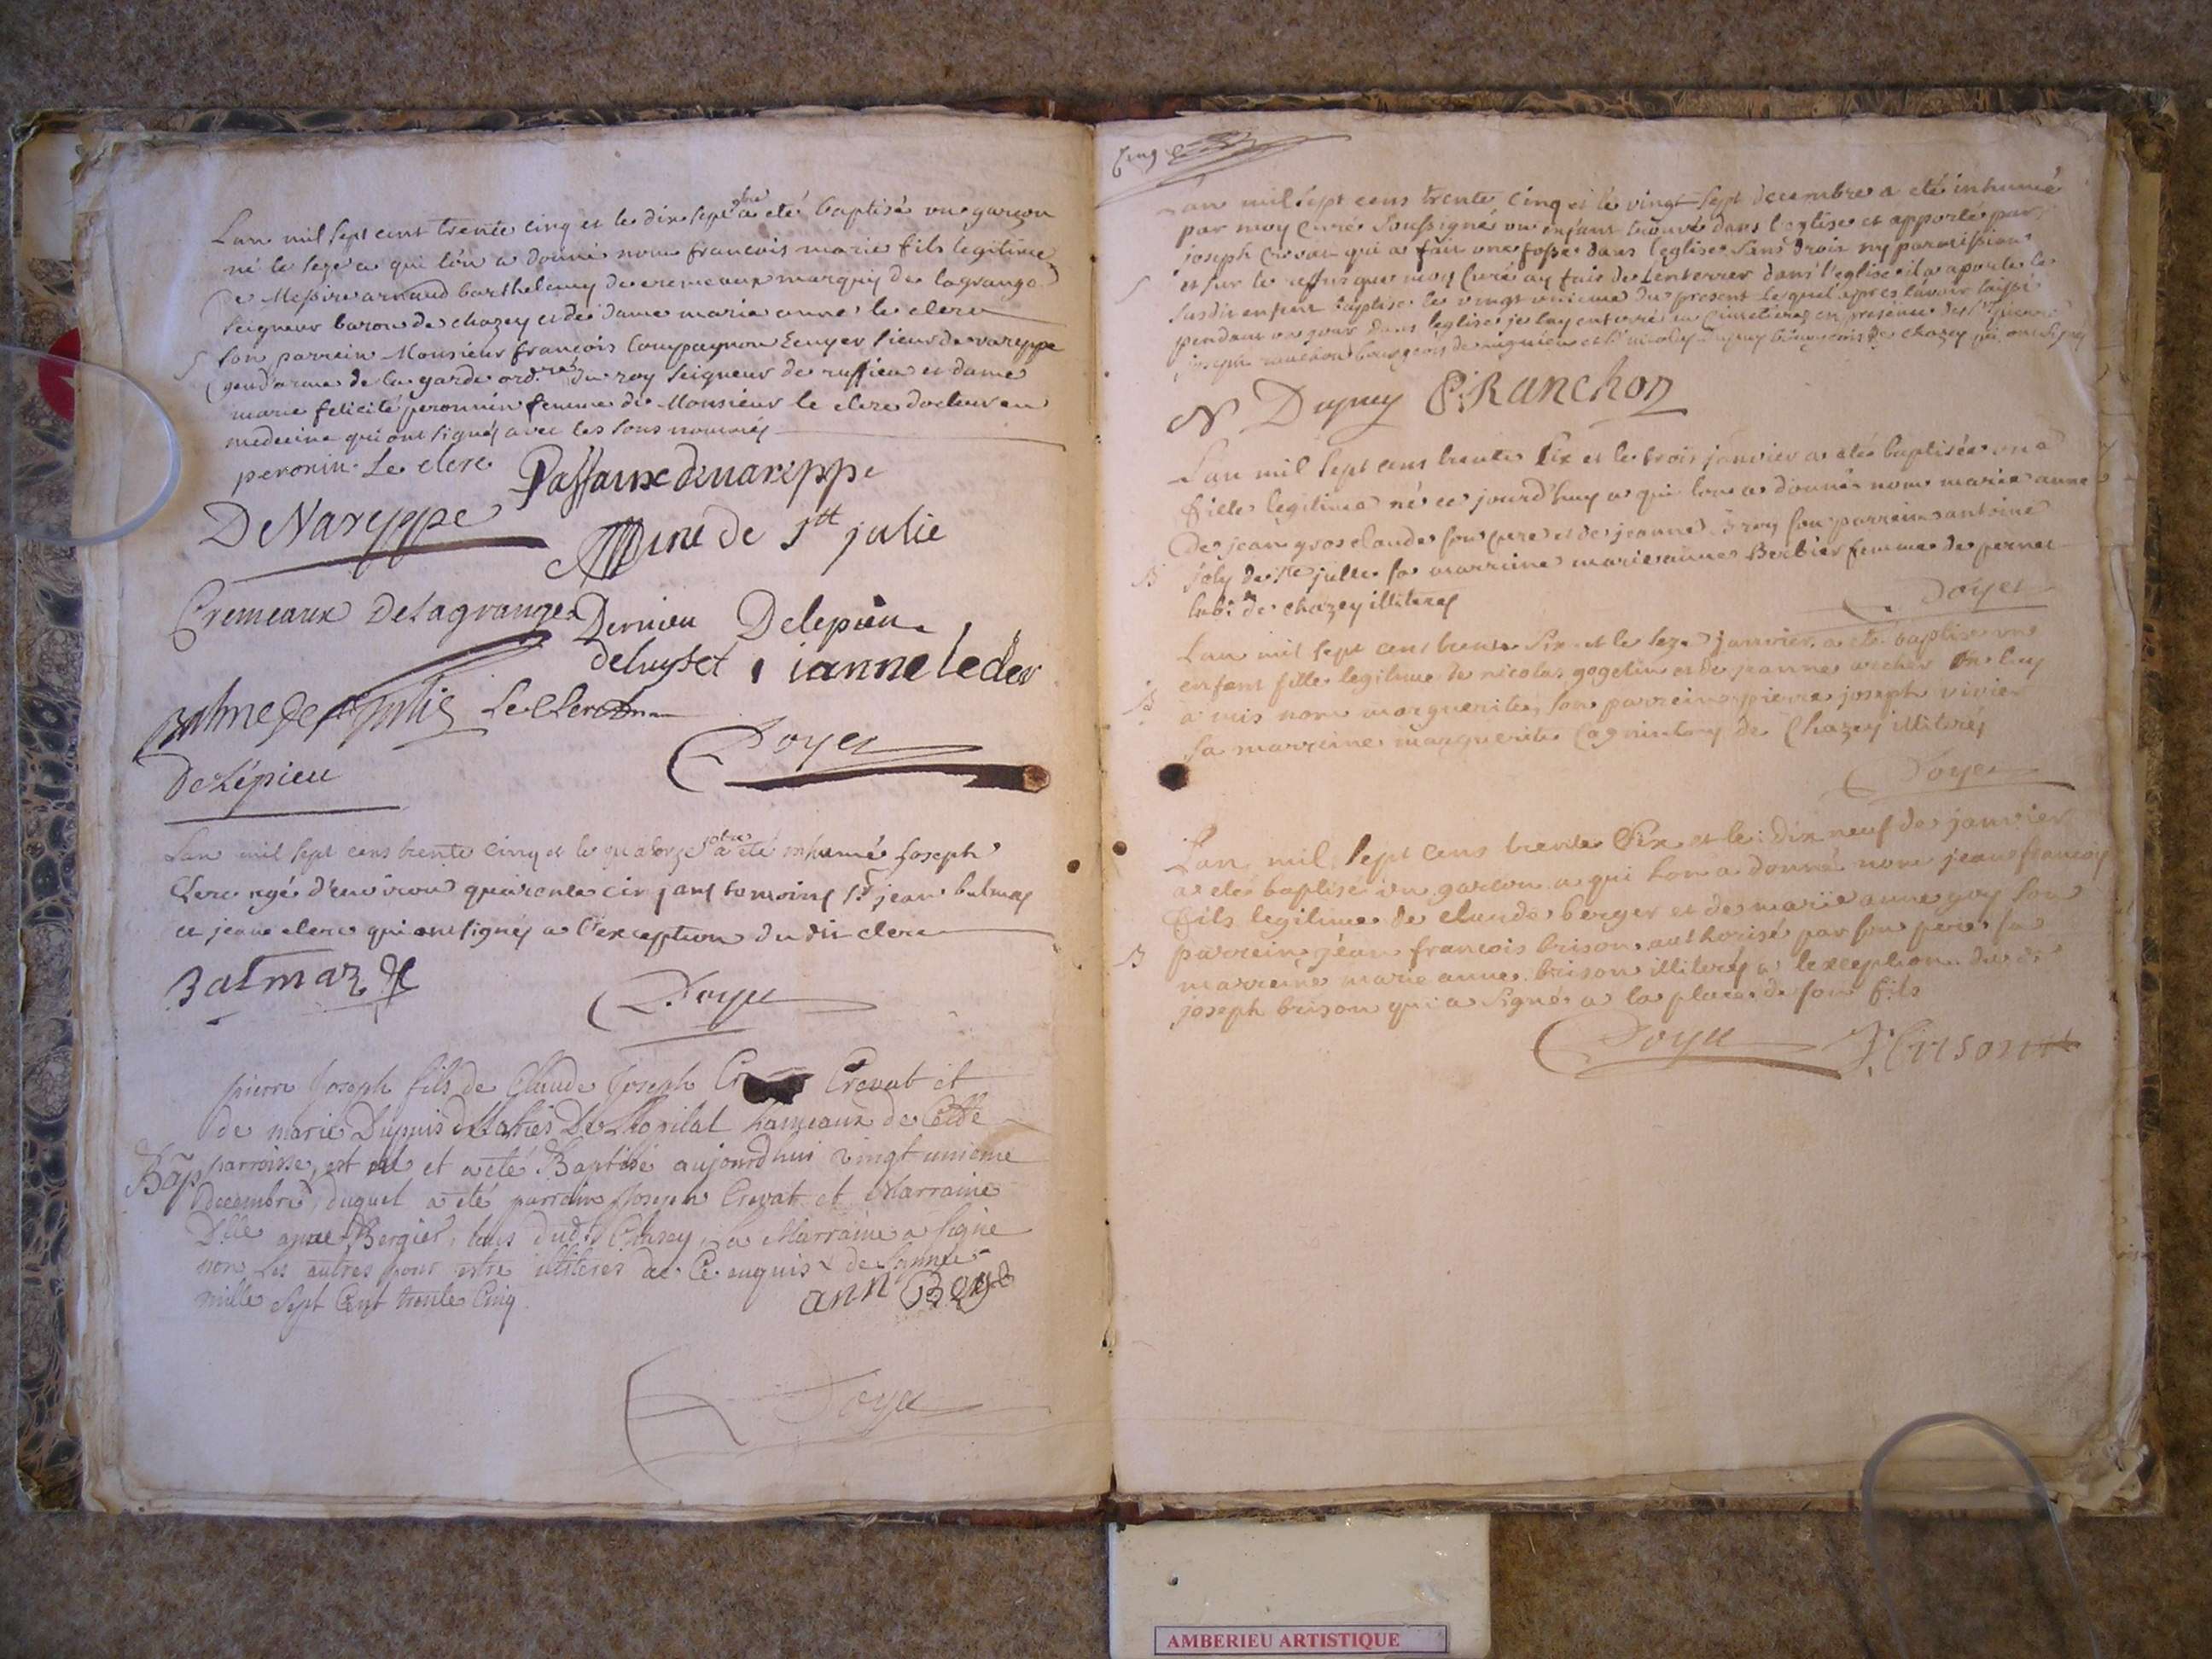 Lan mil sept cent trente cinq et le dix sept 9bre a eté baptisé un garçon
né le seze a qui lón a donné nom francois marie fils legitime
de Messire arnaud barthelemy de cremeaux marquis de lagrange
seigneur baron de chazey et de dame marie anne le clerc
son parrein Monsieur françois Compagnon Ecuyer sieur de vareppe
gendarme de la garde ord.re du roy seigneur de ruffieu et dame
marie felicité peronnin femme de Monsieur le clerc docteur en
medecine qui ont signés avec les sous nommés
peronin Le clerc Passaux devareppe
De Vareppe
de Ste julie
Cremeaux Delagrange Dernieu Delepieu
deluyset janne leclerc
Balme de ste Julie Le Clerc
Doyer
De Lépieu
Lan mil sept cens trente cinq et le quatorze xbre a eté inhumé Joseph
Clerc agé d'environ quarente cinq ans temoins Sr jean balmas
et jean clerc qui ont signés a l'exception du dit clerc
Balmaz
Doyer
pierre Joseph fils de Claude Joseph Crevat et
de marie Dupuis de Lhopital hameaux de Cette
Bap parroisse, est né et a eté Baptisé aujourdhui vingt unieme
decembre, duquel a eté parrain Joseph Crevat et Marraine
Dlle anne Bergier, tous dudt Chasey, La Marraine a signé
non Les autres pour estre illiteres de Ce enquis de L'année
mille sept Cent trente Cinq
ann Berg
Doyer
Cinq
Lan mil sept cens trente cinq et le vingt sept decembre a eté inhumé
par moy Curé Soussigné un enfant trouvé dans l'eglise et apporté par
joseph Crevat qui a fait une fosse dans leglise sans droit ny parmission
et sur le reffus que moy Curé ay fait de Lenterrer dans l'eglise il a aporté le
susdit enfent baptisé le vingt unieme du present lequel apres lávoir laissé
pendant un jour dans leglise je lay enterré au Cimetiere en presence des Srs
joseph ranchon bourgeois de et Sr nicolas dupuy bourgeois de chazey qui ont signés
N Dupuy P. RANCHON
Lan mil sept cens trente six et le trois janvier a eté baptisée une
fille legitime né ce jourd'huy a qui lon a donné nom marie anne
de jean grosclaude son pere et de jeanne son parrein antoine
B joly de ste julie sa marreine marie anne Berbier femme de pernet
lab.r de chazey illiterés
Doyer
Lan mil sept cens trente six et le seze janvier a eté baptisé un
enfant fille legitime de nicolas gogelin et de jeanne archer on luy
B a mis nom marguerite, son parrein pierre joseph vivier
sa marreine marguerite Cognin tous de Chazey illiterés
Doyer
Lan mil sept cens trente six et le dix neuf de janvier
a eté baptisé un garcon a qui lon a donné nom jean francois
fils legitime de claude berger et de marie anne goy son
B parrein jéan francois brison authorisé par son pere sa
marreine marie anne brison illiterés a lexception du dt
joseph brison qui a signé a la place de son fils
Doyer J. brison
AMBERIEU ARTISTIQUE